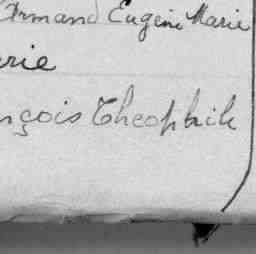 Armand Eugène Marie
rie
nçois Théophile